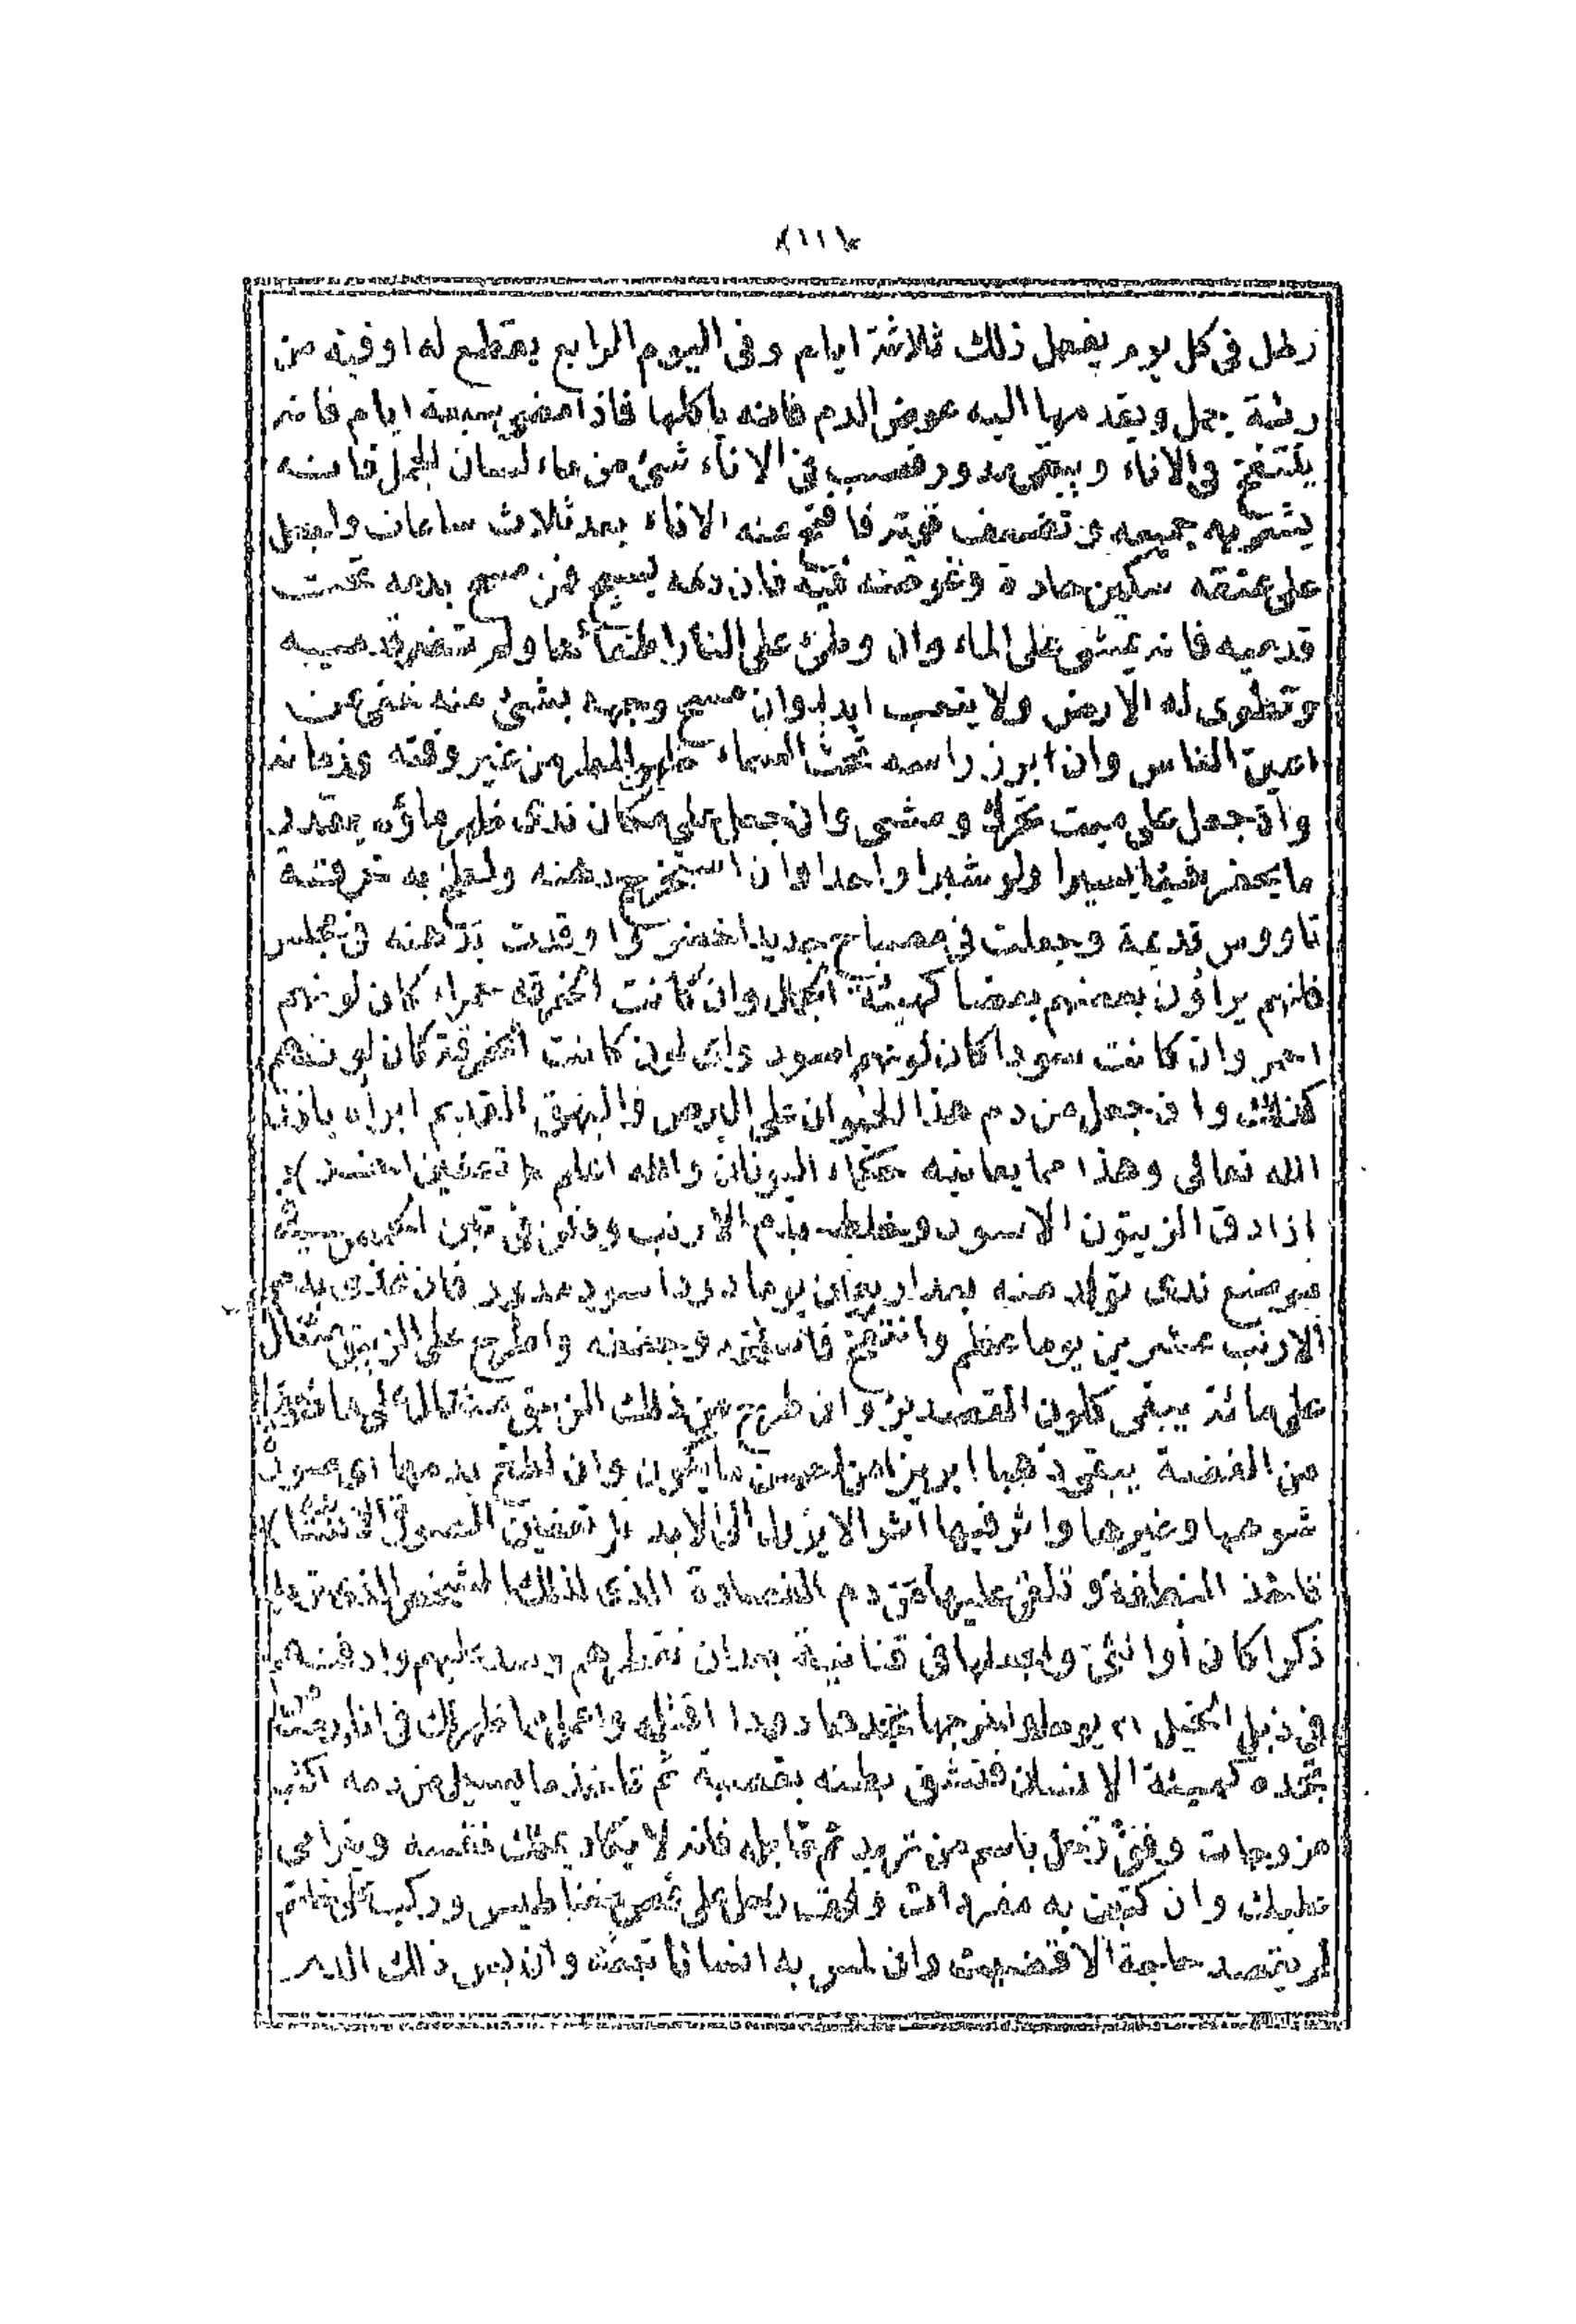 ﴿١١١﴾
رطل فى كل يوم يفعل ذلك ثلاثة ايام وفى اليوم الرابع يقطع له اوقية من
رئة جمل ويقدمها اليه عوض الدم فانه ياكلها فاذا مضى سبعة ايام فانه
ينتفخ فى الاناء ويبقى مدور فصب فى الاناء شئ من ماء لسان الحمل فانه
يشربه جميعه وتضعف قوته فافتح عنه الاناء بعد ثلاث ساعات واجعل
على عنقه سكين حادة فان دمه يسيح فمن مسح بدمه تحت
قدميه فانه يمشى على الماء وان وطئ على النار اطفأها ولم تضر قدميه
وتطوى له الارض ولا يتعب ابدا وان مسح وجهه بشئ منه خفى عن
اعين الناس وان ابرز راسه تحت السماء ظهر المطر من غير وقته وزمانه
وان جعل على ميت تحرك ومشى وان جعل على مكان ندى ظهر ماؤه بقدر
ما يحفر شيئا يسيرا ولو شبرا واحدا وان استخرج دهنه ولطخ به خرقة
تاووس قديمة وجعلت فى مصباح جديد اخضر واوقدت بدهنه فى مجلس
فانهم يراؤن بعضهم بعضا كهيئة الجمال وان كانت الخرقة حمراء كان لونهم
احمر وان كانت سودا كان لونهم اسود واى لون كانت الخرقة كان لونهم
كذلك وان جعل من دم هذا الحيوان على البرص والبهق القديم ابراه باذن
الله تعالى وهذا مما يعانيه حكماء اليونان والله اعلم ﴿تعفين اخضر﴾
اذا دق الزيتون الاسود ويخلط بدم الارنب ودفن فى تبن
موضع ندى تولد منه بعد اربعين يوما دودا سود مدور فان غذى بدم
الارنب عشرين يوما عظم وانتفخ وجففه واطرح على الزيبق مثقال
على مائة يبقى كلون القصدير وان طرح من ذلك الزيبق مثقال على مائة
من الفضة يبقى ذهبا ابريزا من احسن ما يكون وان لطخ بدمها اى صورة
شوهها وغيرها واثر فيها اثرا لا يزول الى الابد ﴿تعفين الصورة﴾
تاخذ النطفة وتلقى عليها من دم الفصادة الذى لذلك الشخص الذى تريد
ذكرا كان أوانثى واجعلها فى قنانية بعدان تقطرهم وسد عليهم وادفنهم
فى زبل الخيل ٢١ يوما واخرجها تجدها دودا اقتله واعمل
تجده كهيئة الانسان فتشق بطنه بقصبة ثم تاخذ ما يسيل من دمه اكتب
مزوجات وفق تجعل باسم من تريد ثم قابله فانه لا يكاد يملك نفسه ويترامى
عليك وان كتبت به مفردات وفق زحل على فص مغناطيس وركبه على خاتم
لم يقصد حاجة الا قضيت وان لمس به انسانا تبعه وان يبس ذلك الدم